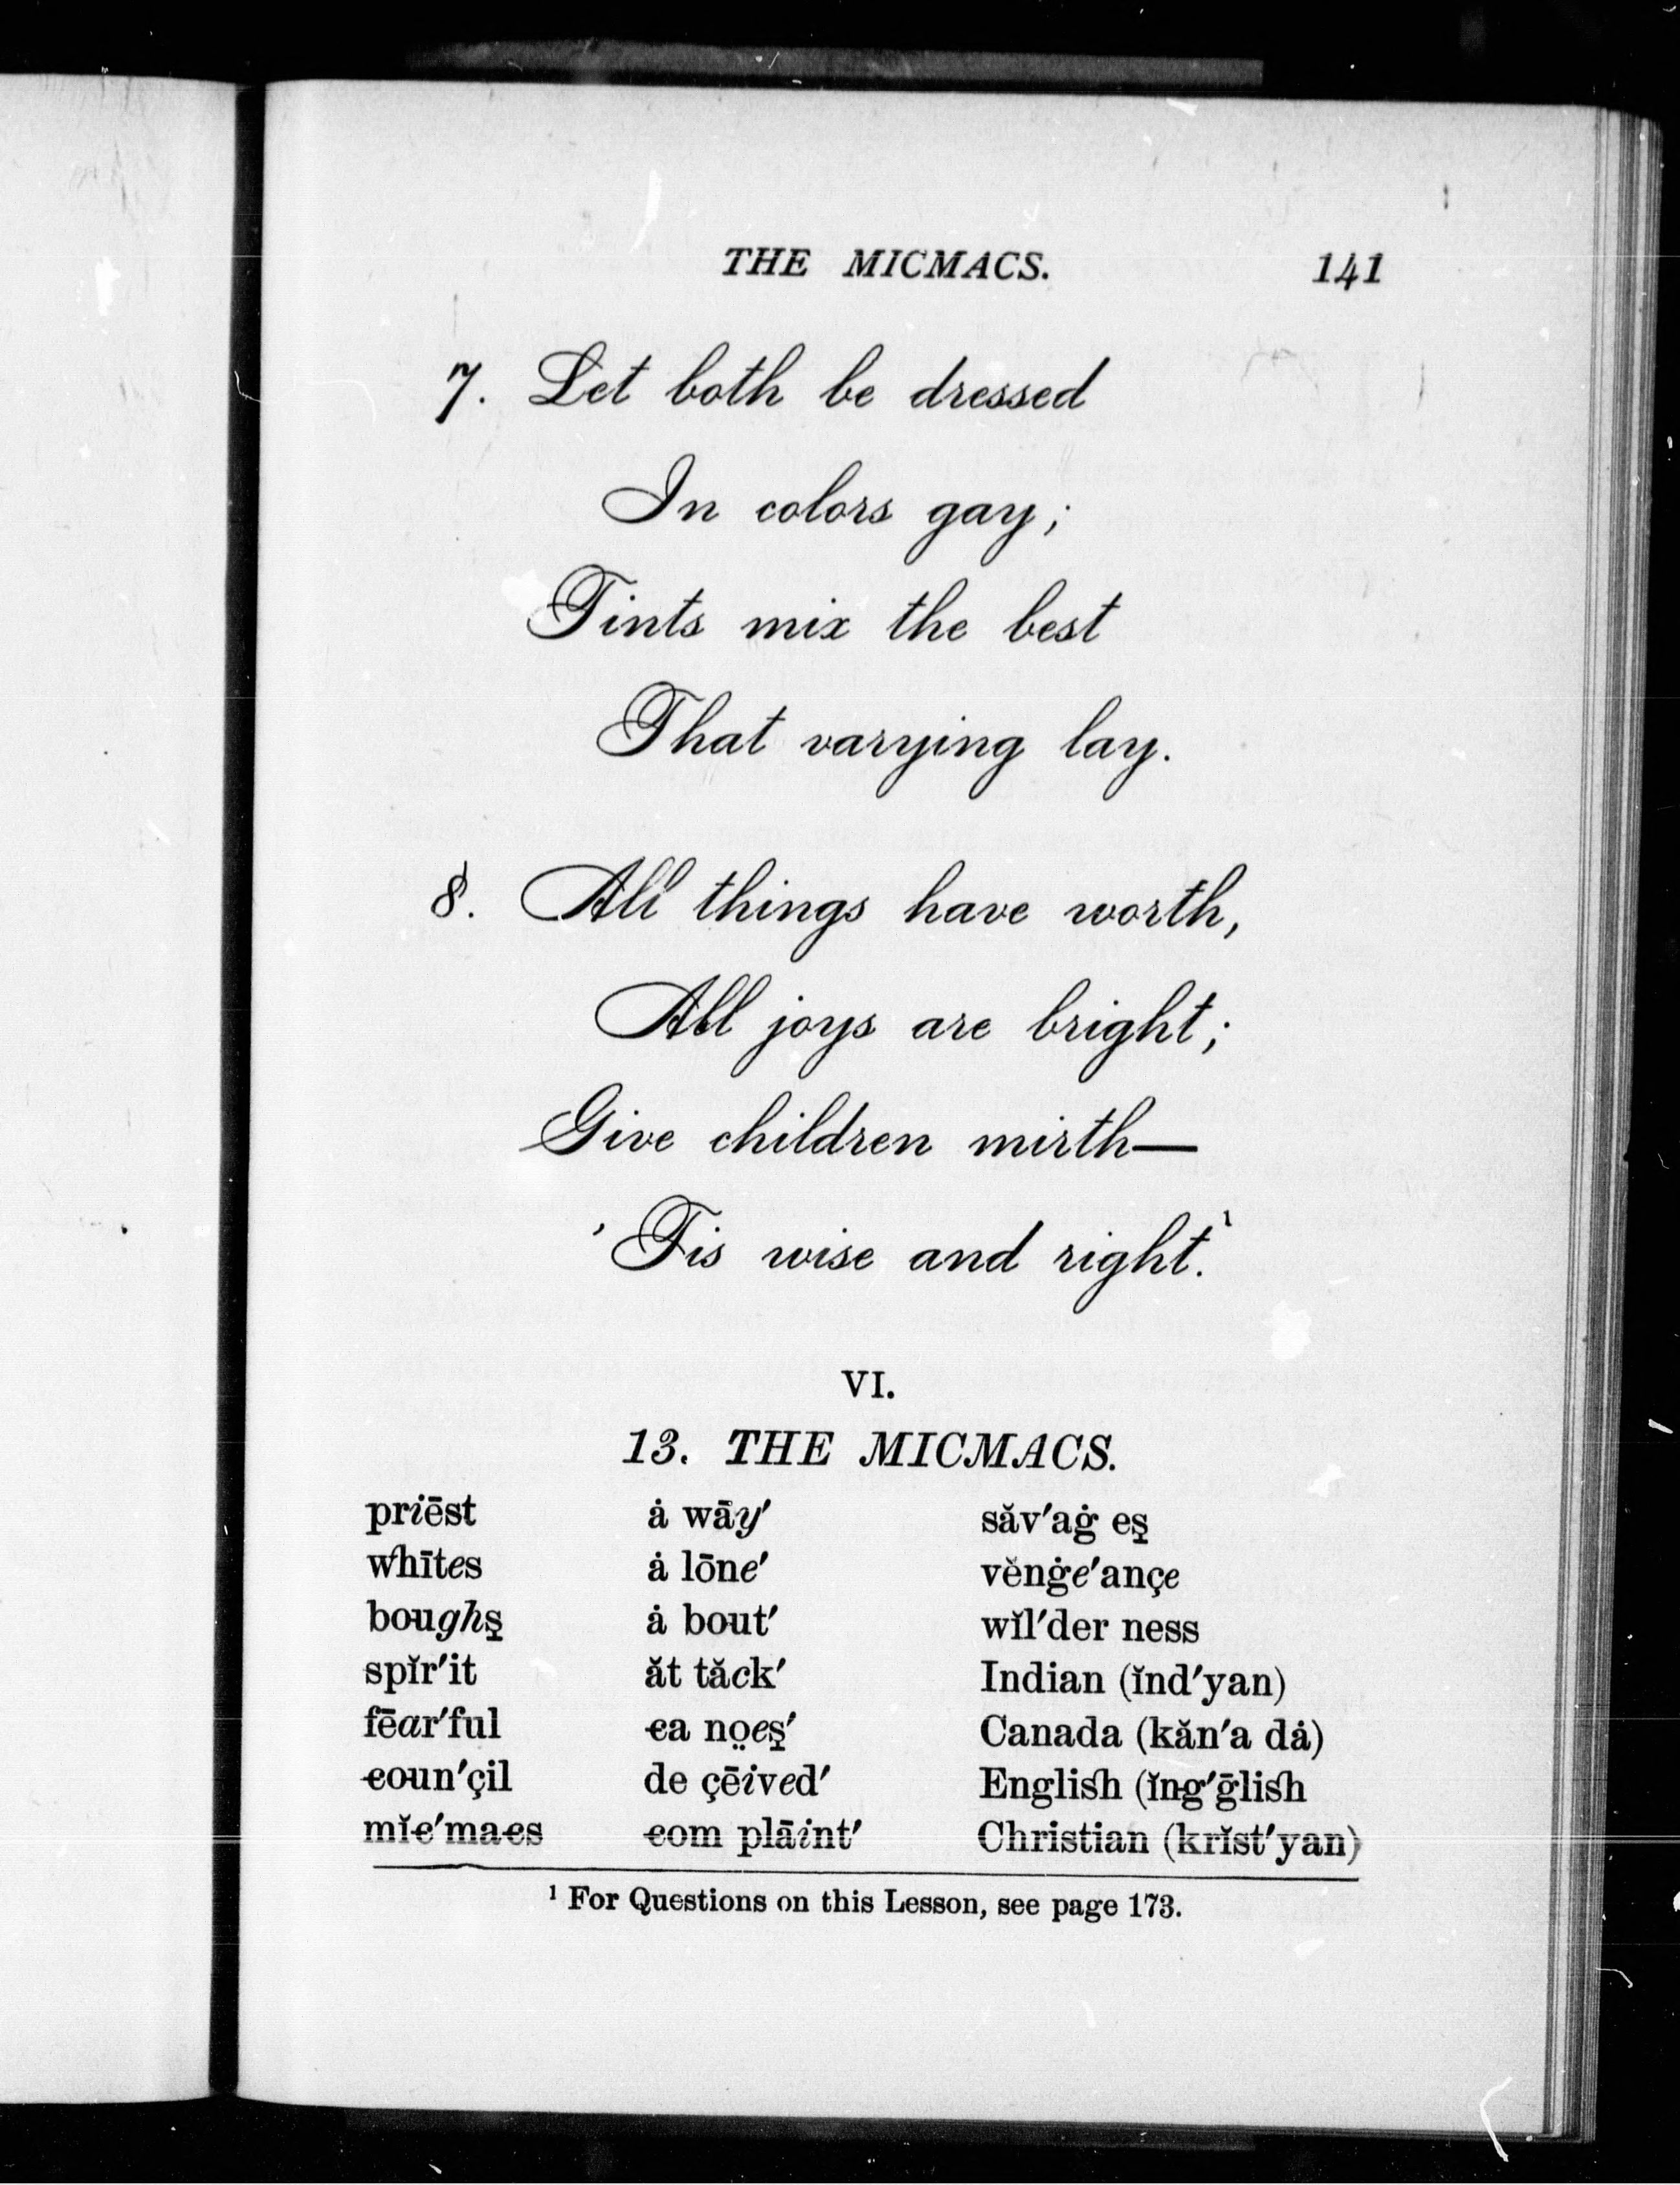 THE MICMACS. 141
7. Let both be dressed
In colors gay;
Tints mix the best
That varying lay.
8. All things have worth,
All joys are bright;
Give children mirth—
'Tis wise and right.¹
VI.
13. THE MICMACS.
priēst ȧ wāy′ săv′aġ eş
whītes ȧ lōne′ vĕnġe′ançe
boughş ȧ bout′ wĭl′der ness
spĭr′it ăt tăck′ Indian (ĭnd′yan)
fēar′ful ca no̤eş′ Canada (kăn′a dȧ)
coun′çil de çēived′ English (ĭng′ḡlish
mĭc′macs com plāint′ Christian (krĭst′yan)
¹ For Questions on this Lesson, see page 173.